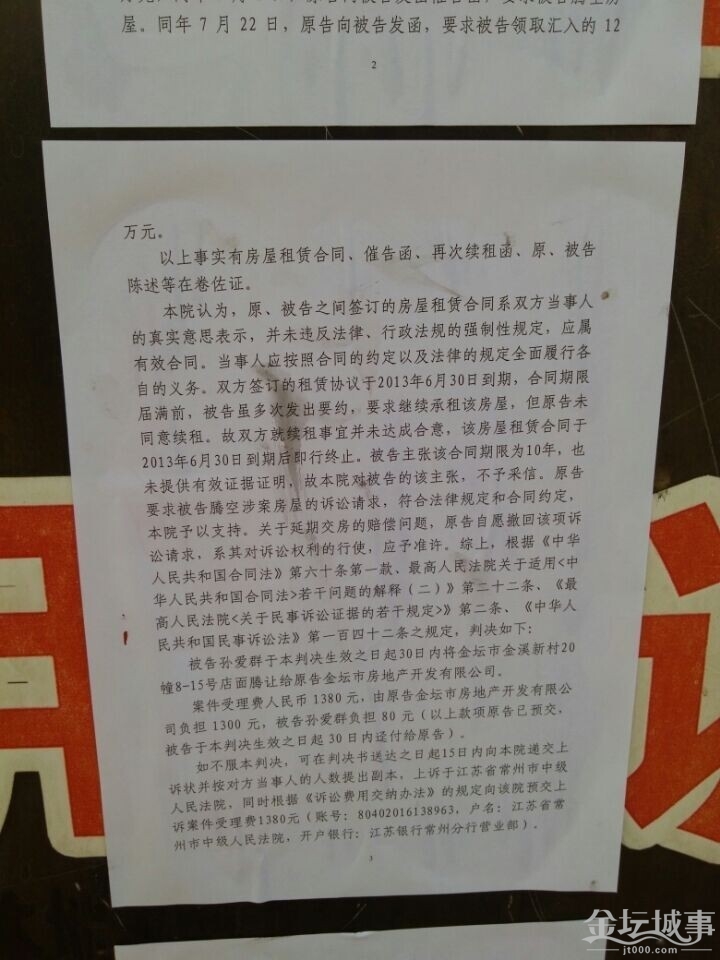 屋。同年 7 月 22 日，原告向被告发函，要求被告领取汇入的 12
2
万元。
以上事实有房屋租赁合同、催告函、再次续租函、原、被告
陈述等在卷佐证。
本院认为，原、被告之间签订的房屋租赁合同系双方当事人
的真实意思表示，并未违反法律、行政法规的强制性规定，应属
有效合同。当事人应按照合同的约定以及法律的规定全面履行各
自的义务。双方签订的租赁协议于2013年6月30日到期，合同期限
届满前，被告虽多次发出要约，要求继续承租该房屋，但原告未
同意续租。故双方就续租事宜并未达成合意，该房屋租赁合同于
2013年6月30日到期后即行终止。被告主张该合同期限为10年，也
未提供有效证据证明，故本院对被告的该主张，不予采信。原告
要求被告腾空涉案房屋的诉讼请求，符合法律规定和合同约定，
本院予以支持。关于延期交房的赔偿问题，原告自愿撤回该项诉
讼请求，系其对诉讼权利的行使，应予准许。综上，根据《中华
人民共和国合同法》第六十条第一款、最高人民法院关于适用<中
华人民共和国合同法>若干问题的解释（二）》第二十二条、《最
高人民法院<关于民事诉讼证据的若干规定>》第二条、《中华人
民共和国民事诉讼法》第一百四十二条之规定，判决如下：
被告孙爱群于本判决生效之日起30日内将金坛市金溪新村20
幢8-15号店面腾让给原告金坛市房地产开发有限公司。
案件受理费人民币 1380 元，由原告金坛市房地产开发有限公
司负担 1300 元，被告孙爱群负担 80 元（以上款项原告已预交，
被告于本判决生效之日起 30 日内迳付给原告）。
如不服本判决，可在判决书送达之日起15日内向本院递交上
诉状并按对方当事人的人数提出副本，上诉于江苏省常州市中级
人民法院，同时根据《诉讼费用交纳办法》的规定向该院预交上
诉案件受理费1380元（账号：80402016138963，户名：江苏省常
州市中级人民法院，开户银行：江苏银行常州分行营业部）。
3
金坛城事
jt000.com